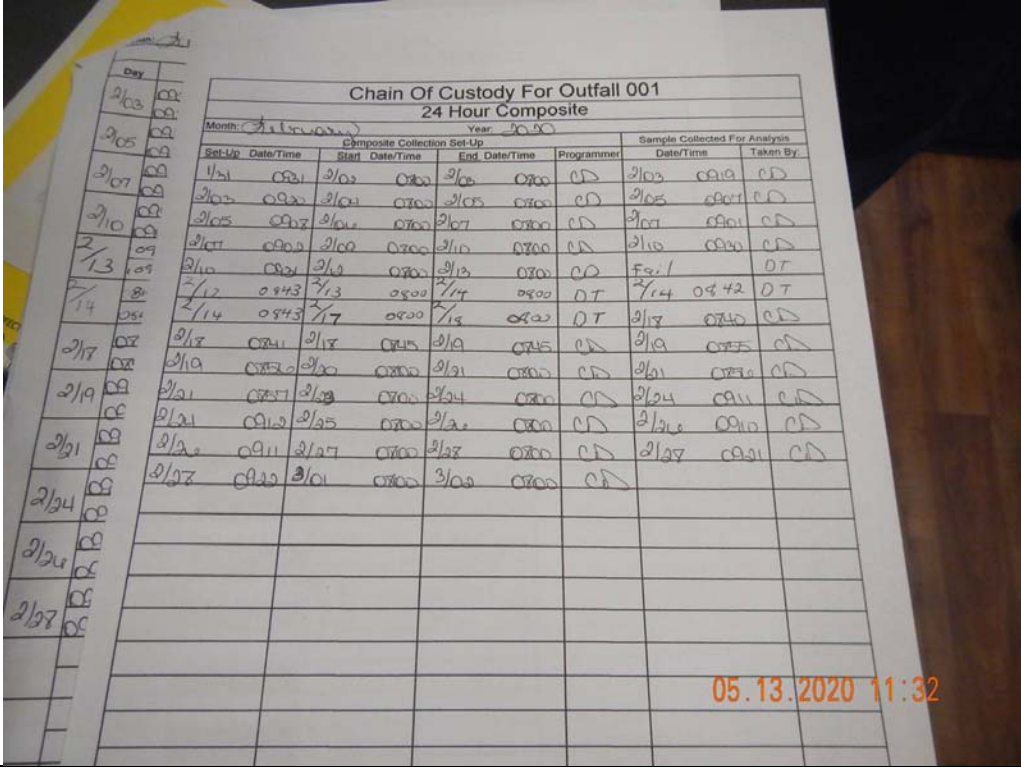 Day
2/03
2/05
2/07
2/10
2/13
2/14
2/18
2/19
2/21
2/24
2/26
2/28
Chain Of Custody For Outfall 001
24 Hour Composite
Month: February Year: 2020
Composite Collection Set-Up Sample Collected For Analysis
Set-Up Date/Time Start Date/Time End Date/Time Programmer Date/Time Taken By:
1/31 0931 2/02 0800 2/03 0700 CD 2/03 0919 CD
2/03 0920 2/04 0700 2/05 0700 CD 2/05 0907 CD
2/05 0908 2/06 0700 2/07 0700 CD 2/07 0901 CD
2/07 0902 2/09 0700 2/10 0700 CD 2/10 0930 CD
2/10 0931 2/12 0700 2/13 0700 CD Fail DT
2/12 0843 2/13 0800 2/14 0800 DT 2/14 0842 DT
2/14 0843 2/17 0800 2/18 0800 DT 2/18 0740 CD
2/18 0741 2/18 0745 2/19 0745 CD 2/19 0755 CD
2/19 2/20 0700 2/21 0700 CD 2/21 CD
2/21 0857 2/23 0700 2/24 0700 CD 2/24 0911 CD
2/21 0912 2/25 0700 2/26 0700 CD 2/26 0910 CD
2/26 0911 2/27 0700 2/28 0700 CD 2/28 0921 CD
2/28 0922 3/01 0700 3/02 0700 CD
05.13.2020 11:32